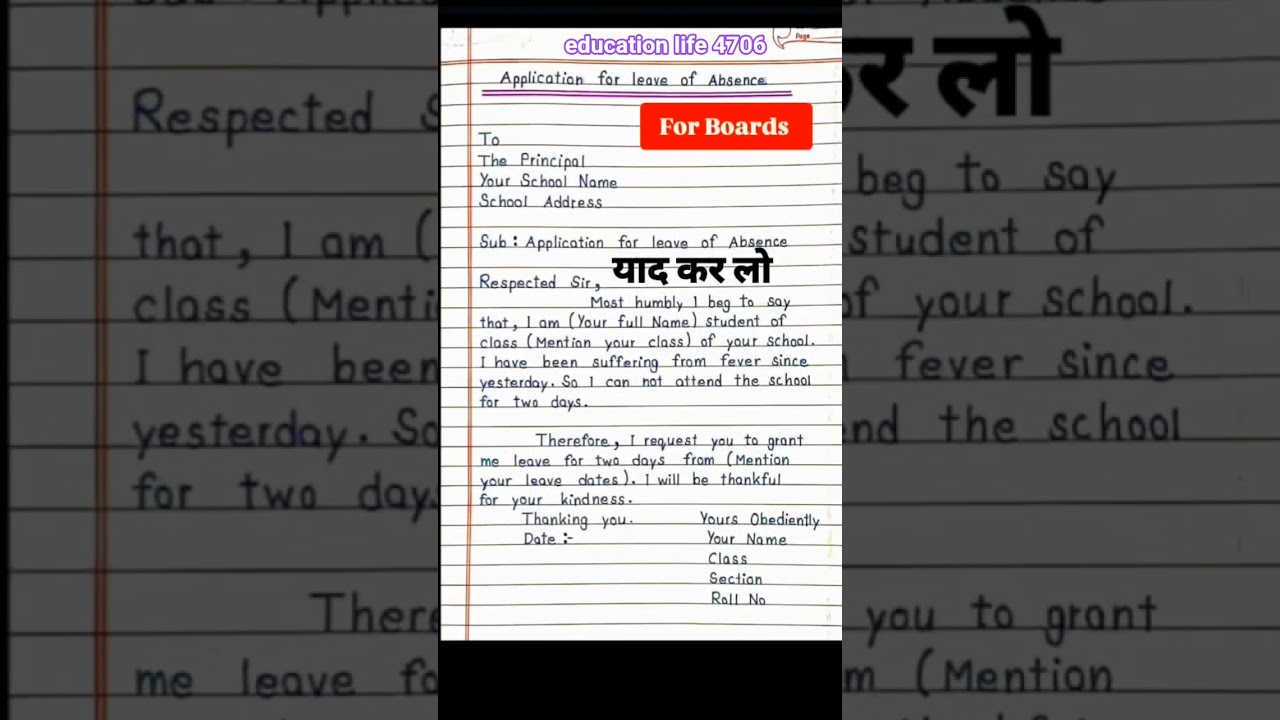 education life 4706
Page
Application for leave of Absence
For Boards
To
The Principal
Your School Name
School Address
Sub : Application for leave of Absence
याद कर लो
Respected Sir,
Most humbly I beg to say
that, I am (Your full Name) student of
class (Mention your class) of your school.
I have been suffering from fever since
yesterday. So I can not attend the school
for two days.
Therefore, I request you to grant
me leave for two days from (Mention
your leave dates). I will be thankful
for your kindness.
Thanking you.
Yours Obediently
Date :-
Your Name
Class
Section
Roll No